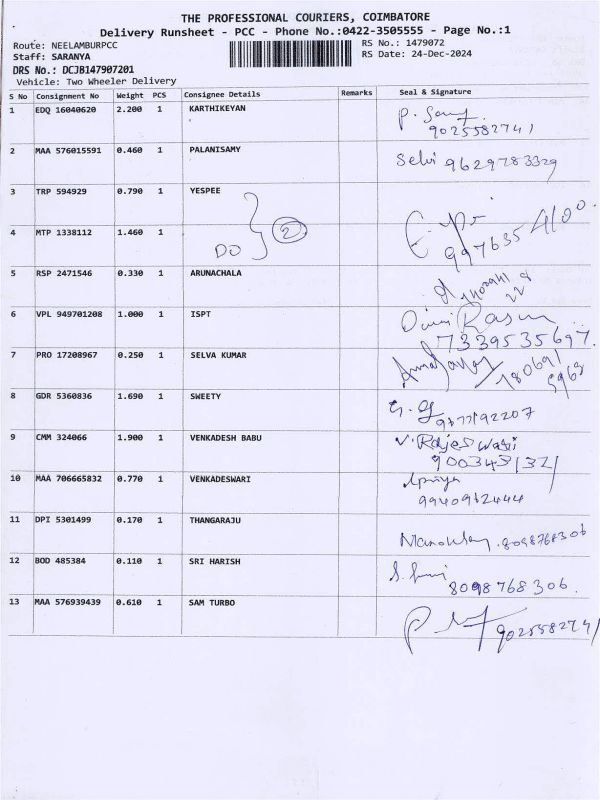 THE PROFESSIONAL COURIERS, COIMBATORE
Delivery Runsheet - PCC - Phone No.:0422-3505555 - Page No.:1
Route: NEELAMBURPCC
RS No.: 1479072
Staff: SARANYA
RS Date: 24-Dec-2024
DRS No.: DCJB147907201
Vehicle: Two Wheeler Delivery
S No Consignment No Weight PCS Consignee Details Remarks Seal & Signature
1 EDQ 16040620 2.200 1 KARTHIKEYAN
9025582741
2 MAA 576015591 0.460 1 PALANISAMY Selvi 9629783329
3 TRP 594929 0.790 1 YESPEE
4 MTP 1338112 1.460 1
DO 2
5 RSP 2471546 0.330 1 ARUNACHALA
6 VPL 949701208 1.000 1 ISPT
7339535697
7 PRO 17208967 0.250 1 SELVA KUMAR
8 GDR 5360836 1.690 1 SWEETY
9 CMM 324066 1.900 1 VENKADESH BABU V. Rajeswari
10 MAA 706665832 0.770 1 VENKADESWARI
11 DPI 5301499 0.170 1 THANGARAJU
8098768306
12 BOD 485384 0.110 1 SRI HARISH
8098768306.
13 MAA 576939439 0.610 1 SAM TURBO
9025582741